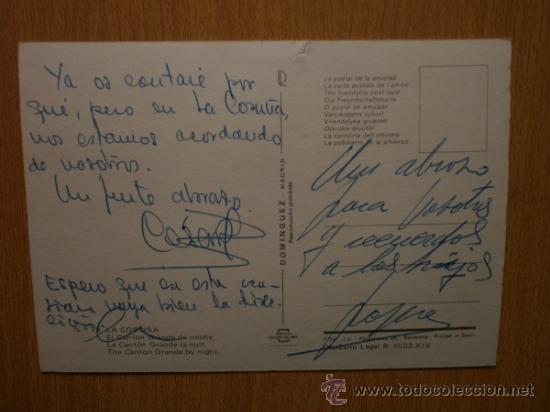 Ya os contaré por
qué, pero en La Coruña,
nos estamos acordando
de vosotros.
Un fuerte abrazo
Espero que en esta oca-
sion vaya bien la
LA CORUÑA
El Cantón Grande de noche
Le Cantón Grande la nuit
The Cantón Grande by night.
DOMINGUEZ - MADRID
Reproducción prohibida
La postal de la amistad
La carte postale de l'amitié
The friendship post card
Die Freundschaftskarte
O postal de amizade
Vanskapens vykort
Vriendelijke groeten
La cartolina dell'amicizia
Un abrazo
para vosotros
y recuerdos
a los
Printed in Spain
Depósito Legal B. 5533-XIX
todocoleccion
www.todocoleccion.net